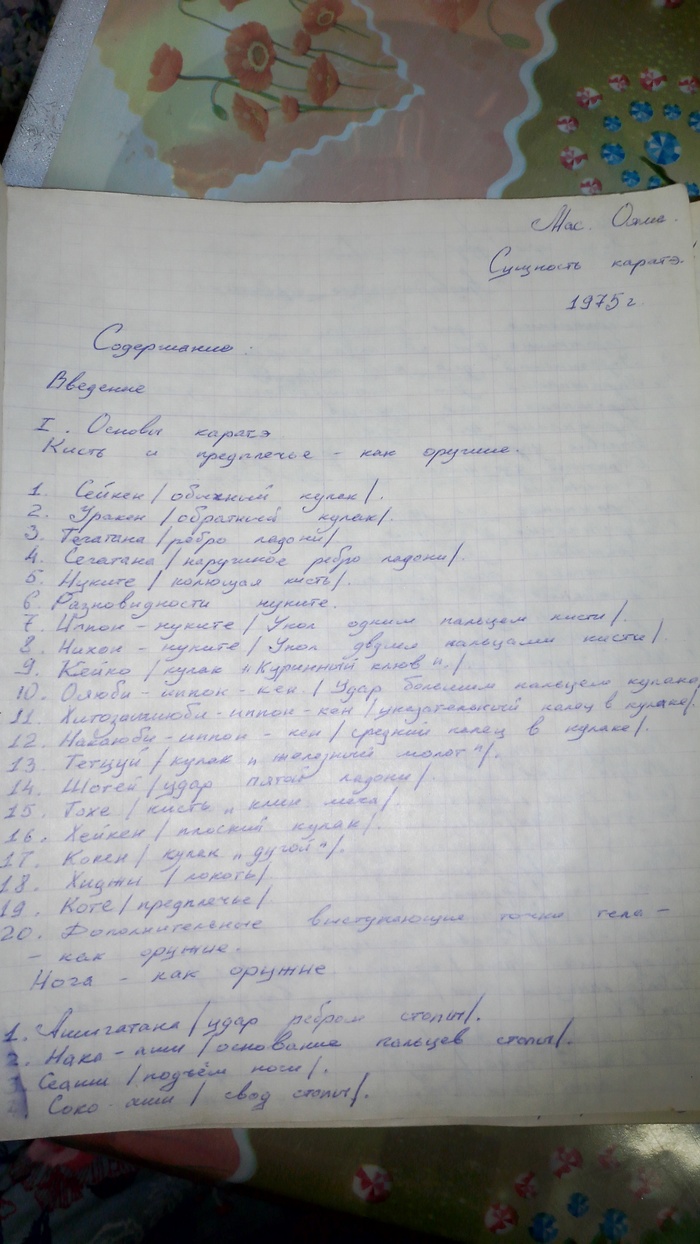 Мас. Ояма.
Сущность каратэ.
1975 г.
Содержание.
Введение
I. Основы каратэ
Кисть и предплечье - как оружие.
1. Сейкен /обычный кулак/.
2. Уракен /обратный кулак/.
3. Тегатана /ребро ладони/.
4. Сегатана /наружное ребро ладони/.
5. Нуките /колющая кисть/.
6. Разновидности нуките.
7. Иппон - нуките /Укол одним пальцем кисти/.
8. Нихон - нуките /Укол двумя пальцами кисти/.
9. Кейко /кулак „Куринный клюв"/.
10. Ояюби - иппон - кен /Удар большим пальцем кулака/
11. - иппон - кен /указательный палец в кулаке/.
12. Накаюби - иппон - кен /средний палец в кулаке/.
13. Тетцуй /кулак „железный молот"/.
14. Шотей /удар пятой ладони/.
15. Тохе /кисть „клин меча/
16. Хейкен /плоский кулак/.
17. Кокен /кулак „дугой"/.
18. Хиджи /локоть/
19. Коте /предплечье/
20. Дополнительные выступающие точки тела -
- как оружие.
Нога - как оружие
1. Ашигатана /удар ребром стопы/.
2. Нака - аши /основание пальцев стопы/.
Сеаши /подъём ноги/.
Соко аши /свод стопы/.